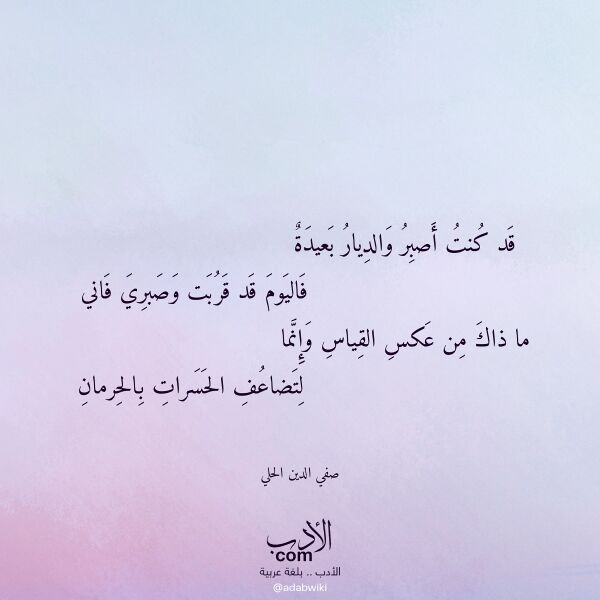 قَد كُنتُ أَصبِرُ وَالدِيارُ بَعيدَةٌ
فَاليَومَ قَد قَرُبَت وَصَبرِيَ فَاني
ما ذاكَ مِن عَكسِ القِياسِ وَإِنَّما
لِتَضاعُفِ الحَسَراتِ بِالحِرمانِ
صفي الدين الحلي
الأدب
com
الأدب .. بلغة عربية
@adabwiki